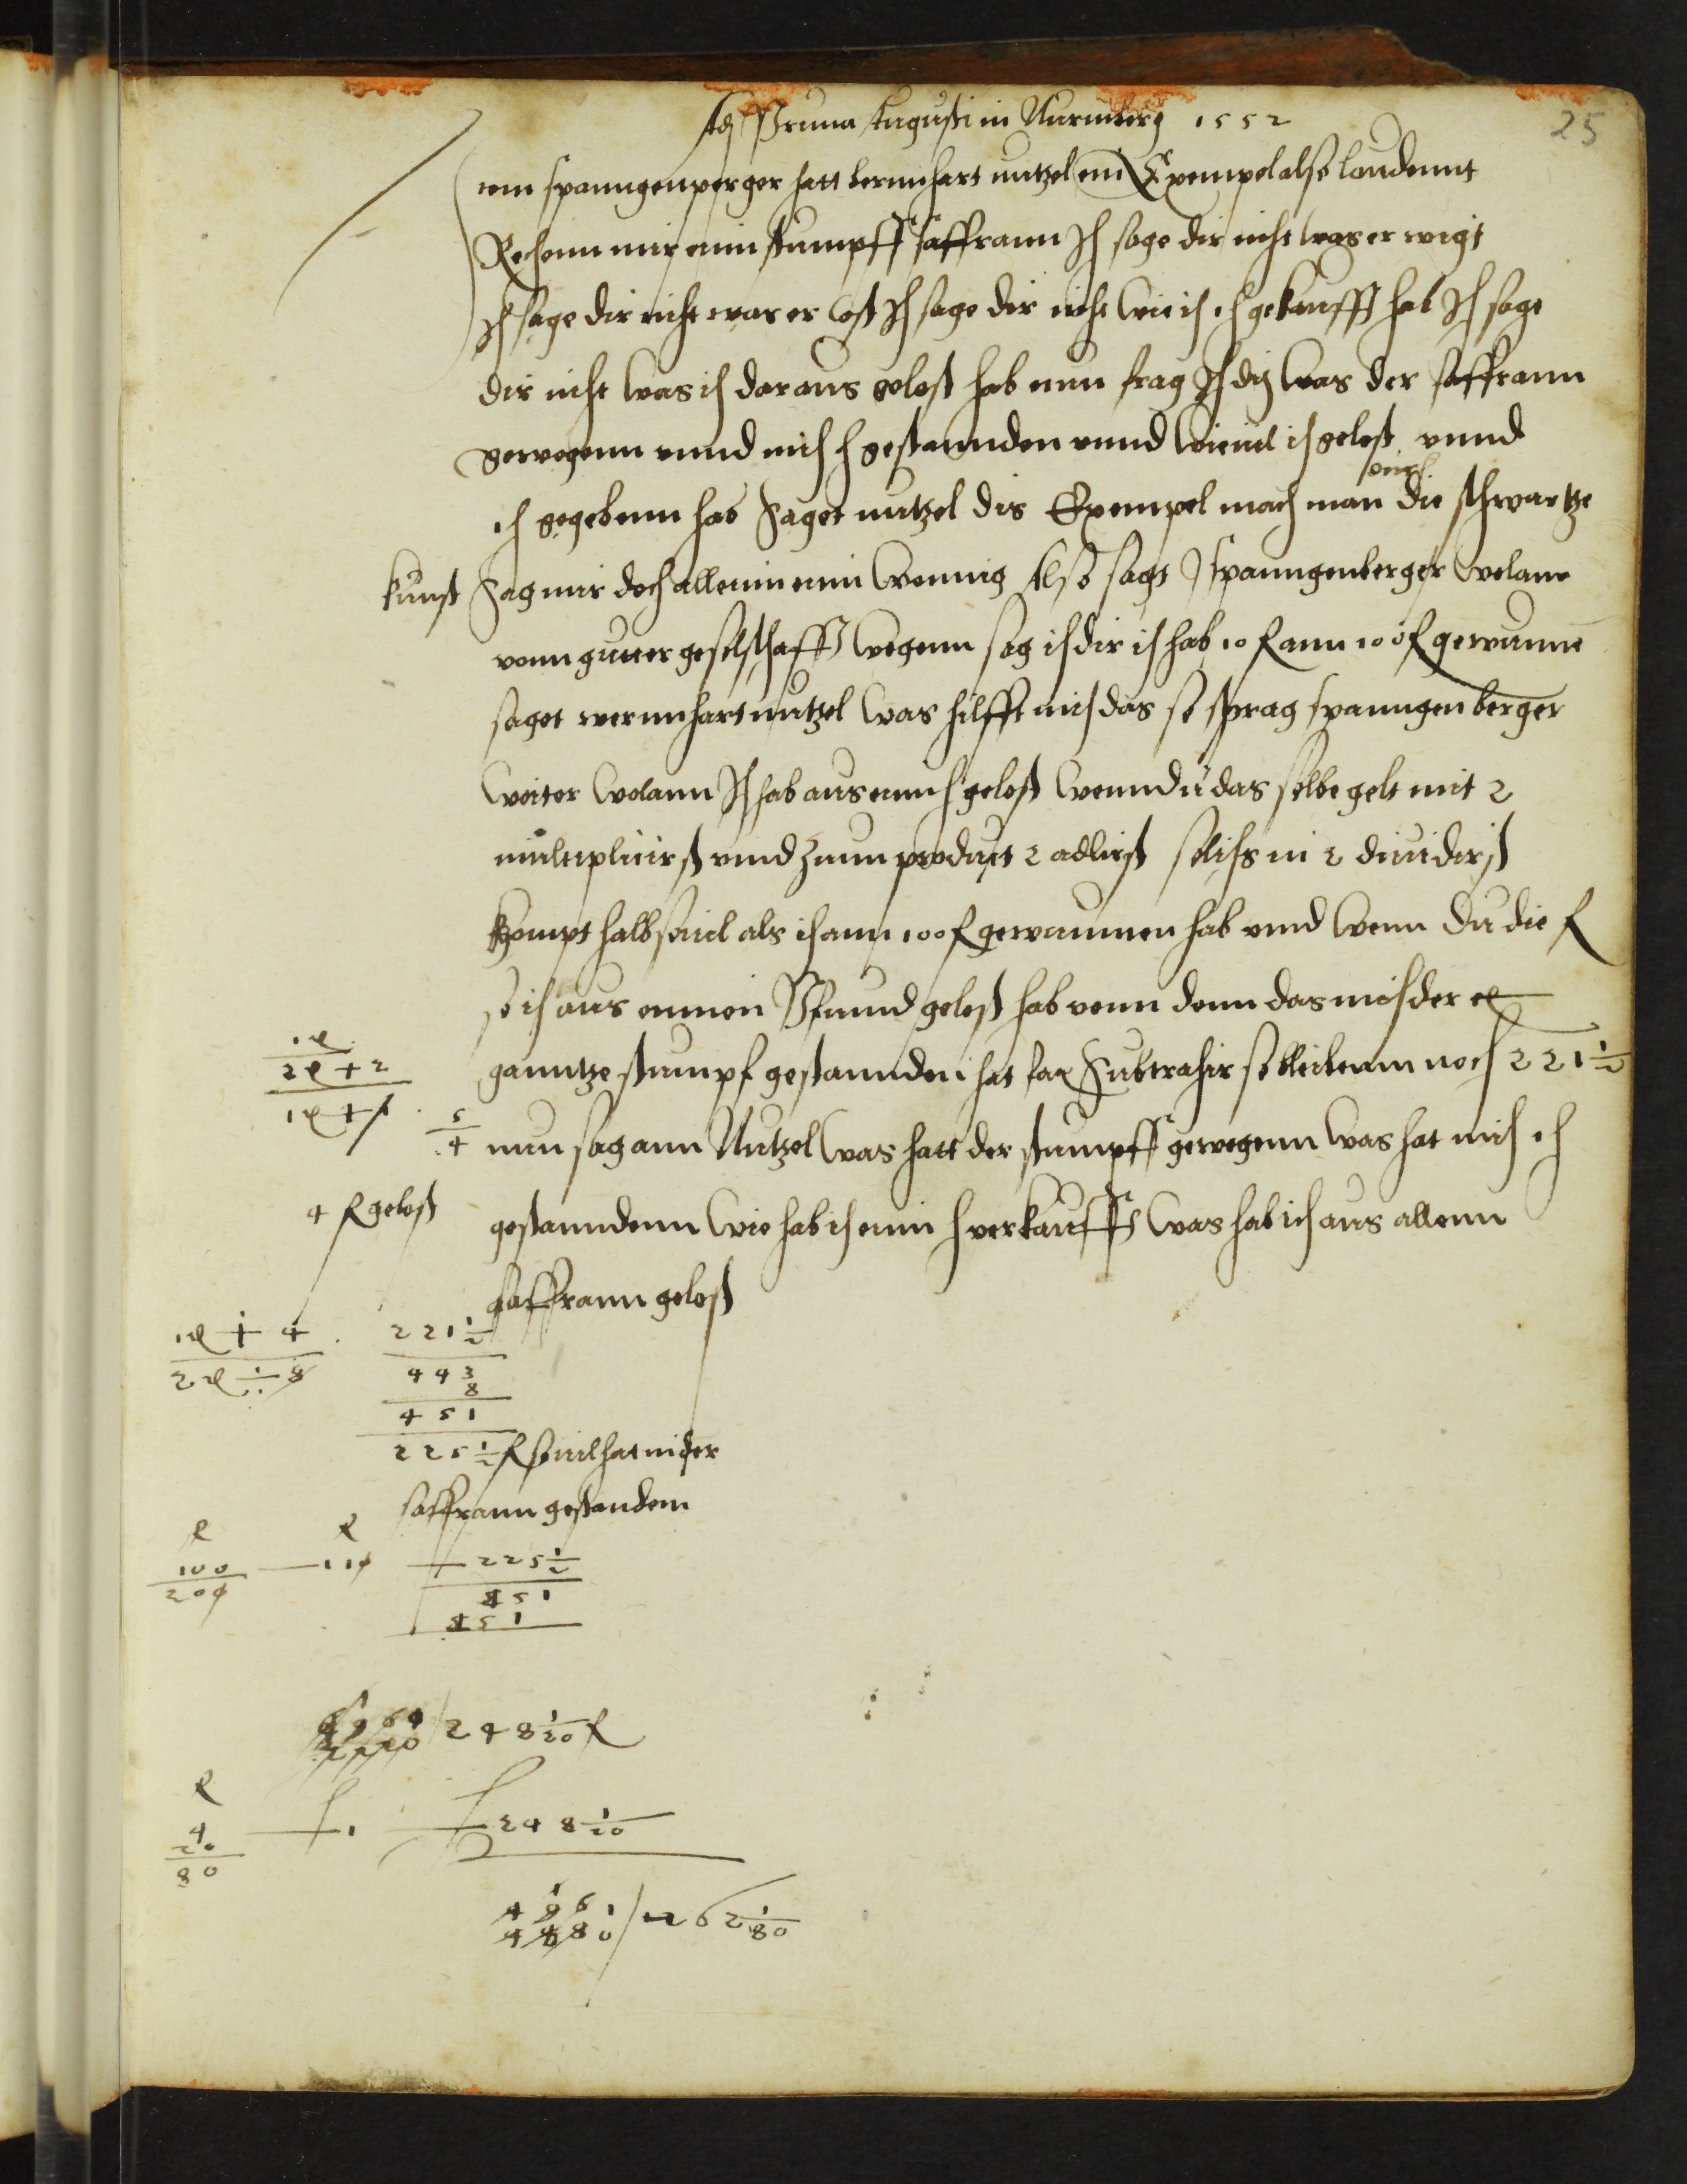 Adj Prima Augusti in Nurmberg 1552
25
spanngenperger hatt bernnhart nutzel ein Exempel also laudennt
Rechenn mir einn stumpff saffrann Ich sage dir nicht was er wigt
Ich sage dir nicht was er cost Ich sage dir nicht wie ich gekaufft hab Ich sage
dir nicht was ich daraus gelost hab nun frag Ich dich was der saffrann
gewogenn unnd mich gestannden unnd wieuil ich gelost unnd
gegebenn hab Saget nutzel dis Exempel mach man die schwartze
kunst Sag mir doch allein ein wennig Also sagt spanngenberger wolann
vonn gutter geselschafft wegenn sag ich dir ich hab 10 f ann 100 f gewunne
saget wernnhart nutzel was hilfft mich das so sprag spanngenberger
weiter wolann Ich hab aus einn gelost wenn du das selbe gelt mit 2
multiplicirst unnd Zum product 2 addirst solichs in 2 diuidirst
kompt halb souil als ich ann 100 f gewunnen hab unnd wenn du die f
so ich aus einnen Pfund gelost hab vonn denn das mich der
ganntze stumpf gestannden hat Subtrahir so bleibenn noch 221 1/2
nun sag ann Nutzel was hatt der stumpff gewogenn was hat mich
gestanndenn wie hab ich einn verkaufft was hab ich aus allenn
saffrann gelost
2 + 2
1 + 1
5
4
4 f gelost
1 + 4
2 ÷ 8
221 1/2
443
8
451
225 1/2 f souil hat mich der
saffrann gestanden
100 — 110 — 225 1/2
200
451
451
248 1/20 f
4 — 1 — 248 1/20
20
80
4961
62 1/80